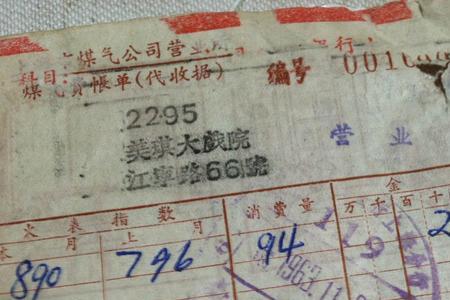 煤气公司营业
科目:
煤气费帳单(代收据)
编号 0010
2295
美琪大戲院
江寧路66號
营业
金
火表指数
消費量
万千百十
本月
上月
890 796 94
1963.11